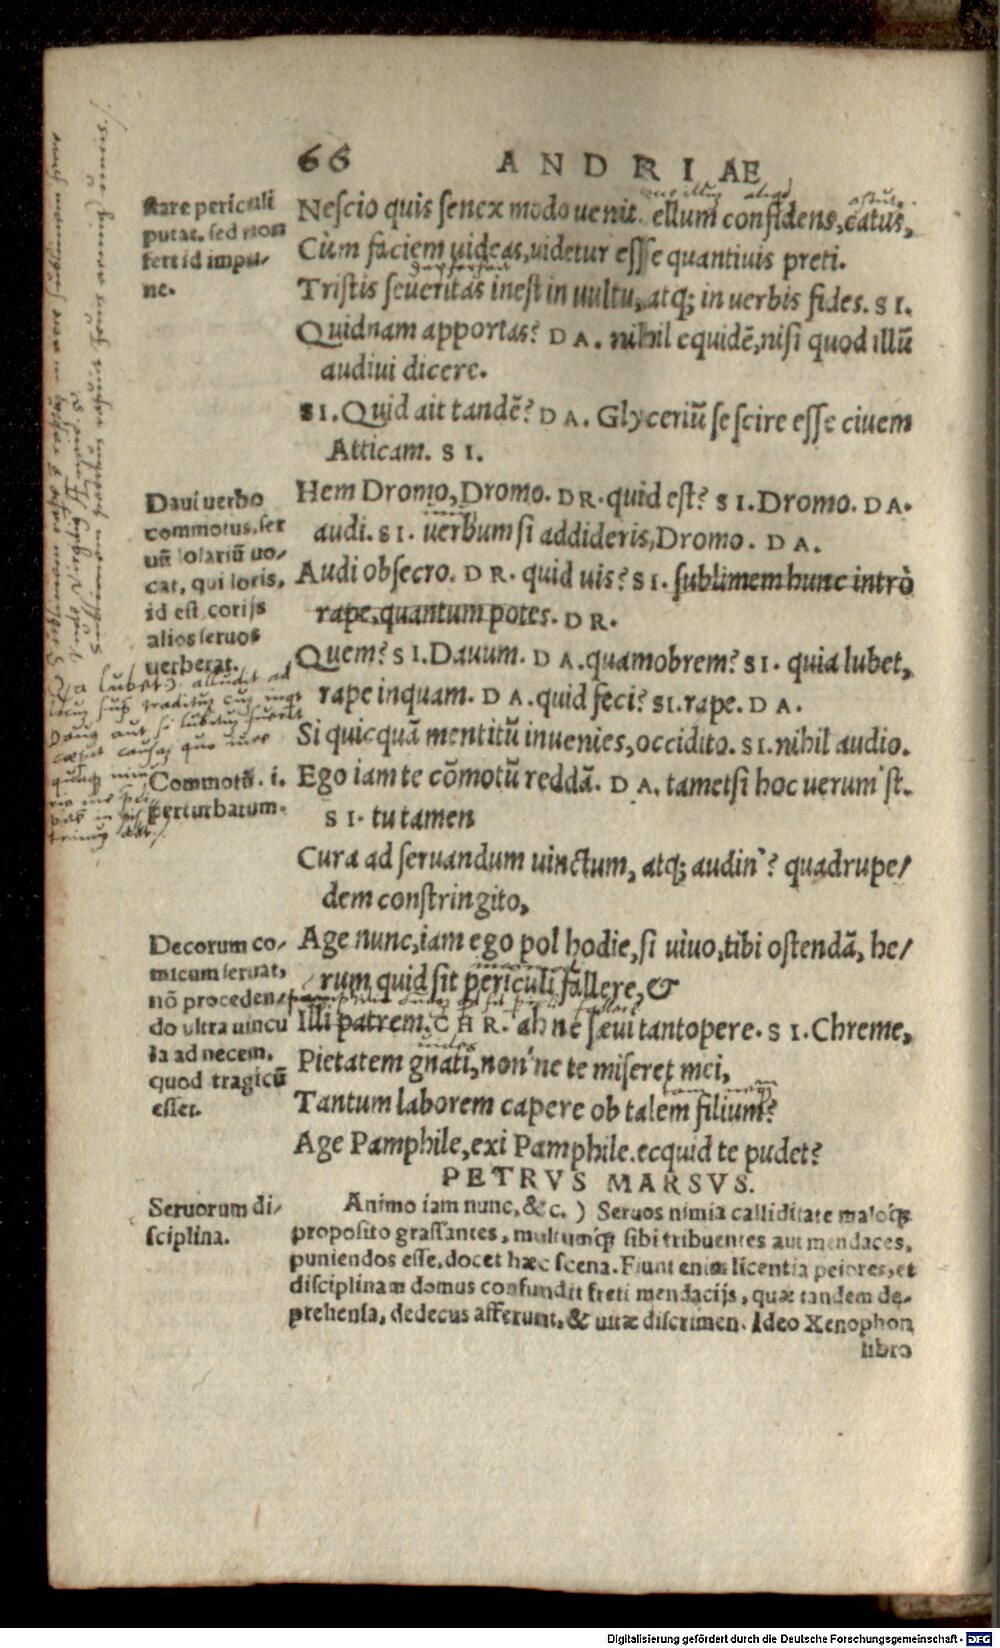 66 ANDRIAE
stare periculi
putat. sed non
fert id impu/
ne.
Nescio quis senex modo uenit. ellum confidens, catus,
Cùm faciem uideas, uidetur esse quantiuis preti.
Tristis seueritas inest in uultu, atq; in uerbis fides. SI.
Quidnam apportas? DA. nihil equidē, nisi quod illū
audiui dicere.
SI. Quid ait tandē? DA. Glyceriū se scire esse ciuem
Atticam. SI.
Daui uerbo
commotus, ser
uū lolariū uo/
cat, qui loris,
id est corijs
alios seruos
uerberat.
Hem Dromo, Dromo. DR. quid est? SI. Dromo. DA.
audi. SI. uerbum si addideris, Dromo. DA.
Audi obsecro. DR. quid uis? SI. sublimem hunc intrò
rape, quantum potes. DR.
Quem? SI. Dauum. DA. quamobrem? SI. quia lubet,
rape inquam. DA. quid feci? SI. rape. DA.
Si quicquā mentitū inuenies, occidito. SI. nihil audio.
Commotū. i.
perturbatum.
Ego iam te cōmotū reddā. DA. tametsi hoc uerum'st.
SI. tu tamen
Cura ad seruandum uinctum, atq; audin'? quadrupe/
dem constringito,
Decorum co/
micum seruat,
nō proceden/
do ultra uincu
la ad necem.
quod tragicū
esset.
Age nunc, iam ego pol hodie, si uiuo, tibi ostendā, he/
rum quid sit periculi fallere, &
Illi patrem. CHR. ah ne sæui tantopere. SI. Chreme,
Pietatem gnati, non'ne te miseret mei,
Tantum laborem capere ob talem filium?
Age Pamphile, exi Pamphile. ecquid te pudet?
PETRVS MARSVS.
Seruorum di/
sciplina.
Animo iam nunc, &c.) Seruos nimia calliditate maloq;
proposito grassantes, multumq; sibi tribuentes aut mendaces,
puniendos esse, docet hæc scena. Fiunt enim licentia peiores, et
disciplinam domus confundit freti mendacijs, quæ tandem de/
prehensa, dedecus afferunt, & uitæ discrimen. Ideo Xenophon
libro
Digitalisierung gefördert durch die Deutsche Forschungsgemeinschaft - DFG